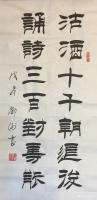 沽酒十千朝退後
誦詩三百對專能
書